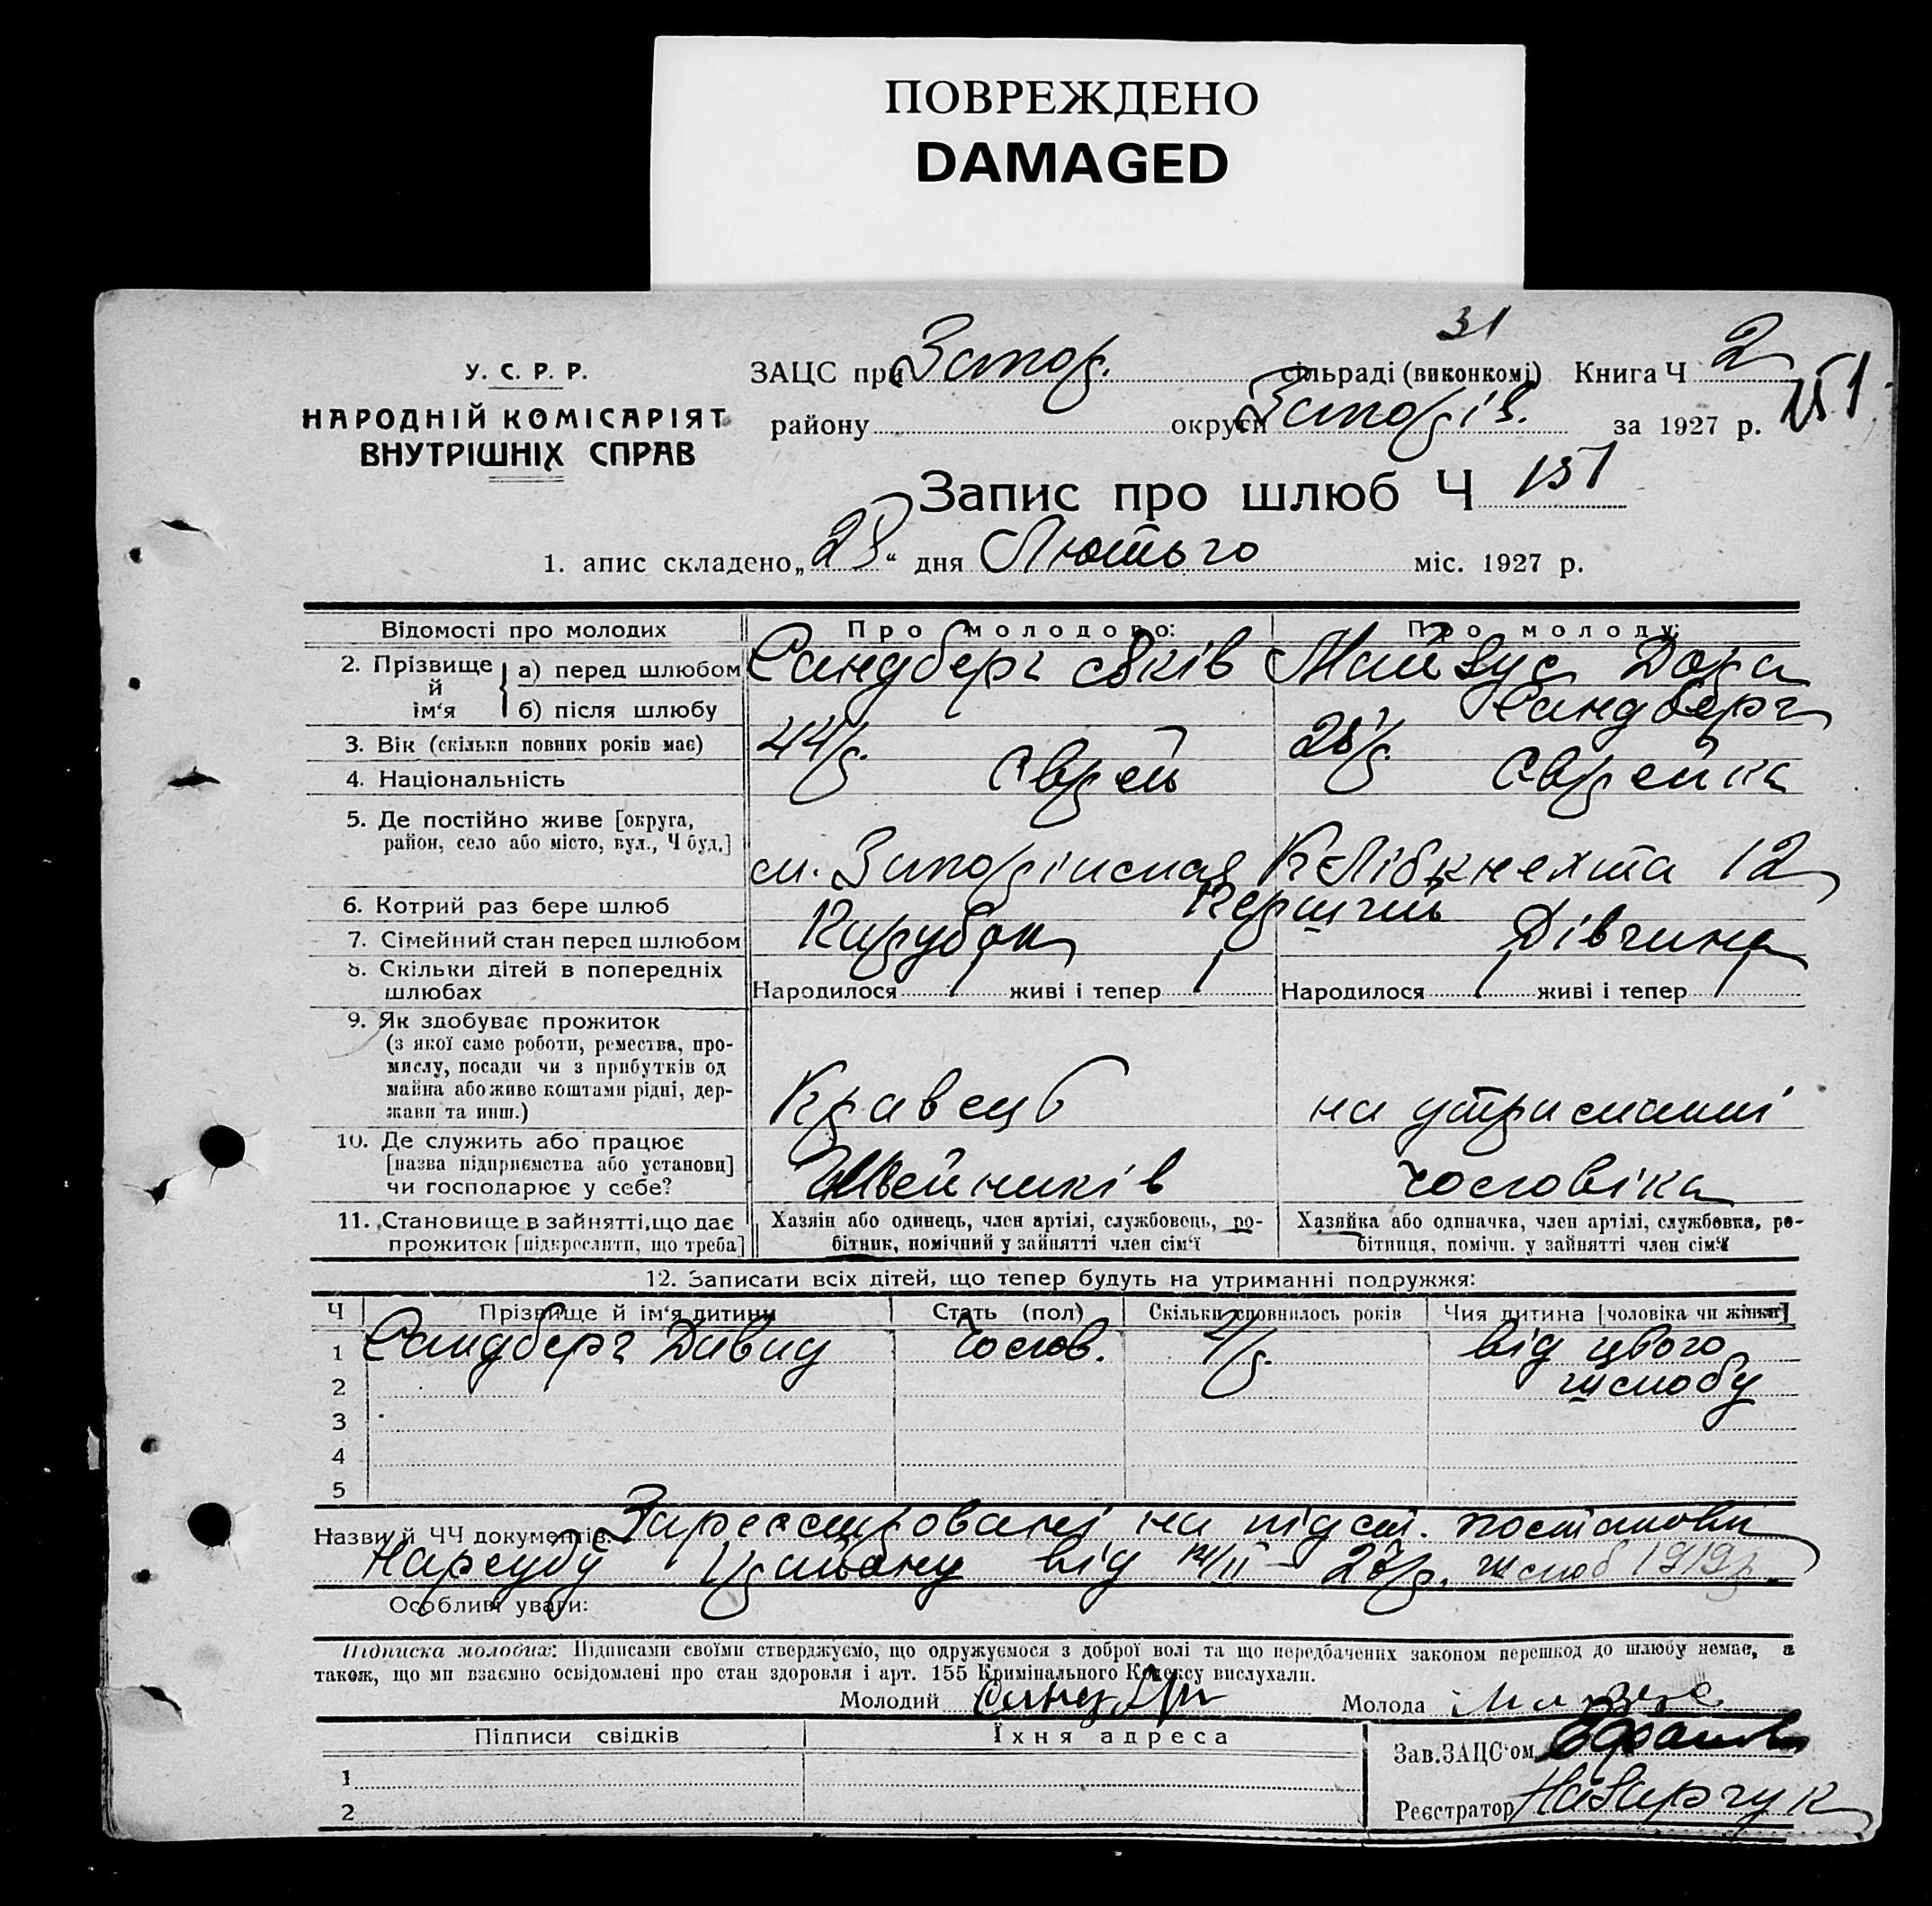 ПОВРЕЖДЕНО
DAMAGED
31
У. С. Р. Р.
НАРОДНІЙ КОМІСАРІЯТ
ВНУТРІШНІХ СПРАВ
ЗАЦС при Запор. сільраді (виконкомі) Книга Ч 2
району округи Запоріз. за 1927 р. 151
Запис про шлюб Ч 151
1. апис складено „28“ дня Лютого міс. 1927 р.
Відомості про молодих Про молодого: Про молоду:
2. Прізвище й ім‘я а) перед шлюбом Сандберг Яків Майзус Дора
б) після шлюбу Сандберг
3. Вік (скільки повних років має) 44 р. 28 р.
4. Національність Єврей Єврейка
5. Де постійно живе [округа,
район, село або місто, вул., Ч буд.] К Лібкнехта 12
6. Котрий раз бере шлюб
7. Сімейний стан перед шлюбом Парубок Дівчина
8. Скільки дітей в попередніх
шлюбах Народилося / живі і тепер / Народилося / живі і тепер /
9. Як здобуває прожиток
(з якої саме роботи, ремества, про-
мислу, посади чи з прибутків од
майна або живе коштами рідні, дер-
жави та инш.) Кравець на утриманні
10. Де служить або працює
[назва підприємства або установи]
чи господарює у себе? Швейників чоловіка
11. Становище в зайнятті, що дає
прожиток [підкреслити, що треба]
Хазяїн або одинець, член артілі, службовець, ро-
бітник, помічний у зайнятті член сім‘ї
Хазяйка або одиначка, член артілі, службовка, ро-
бітниця, помічн. у зайнятті член сім‘ї
12. Записати всіх дітей, що тепер будуть на утриманні подружжя:
Ч Прізвище й ім‘я дитини Стать (пол) Скільки сповнилось років Чия дитина [чоловіка чи жінки]
1 Сандберг Давид чолов. від цього
2 шлюбу
3
4
5
Назви й ЧЧ документів: на підст. постанови
Нарсуду від 14/II 27 р. шлюб 1919 р.
Особливі уваги:
Підписка молодих: Підписами своїми стверджуємо, що одружуємося з доброї волі та що передбачених законом перешкод до шлюбу немає, а
також, що ми взаємно освідомлені про стан здоровля і арт. 155 Кримінального Кодексу вислухали.
Молодий Молода
Підписи свідків Їхня адреса
Зав.ЗАЦС‘ом
1
Реєстратор Назарчук
2